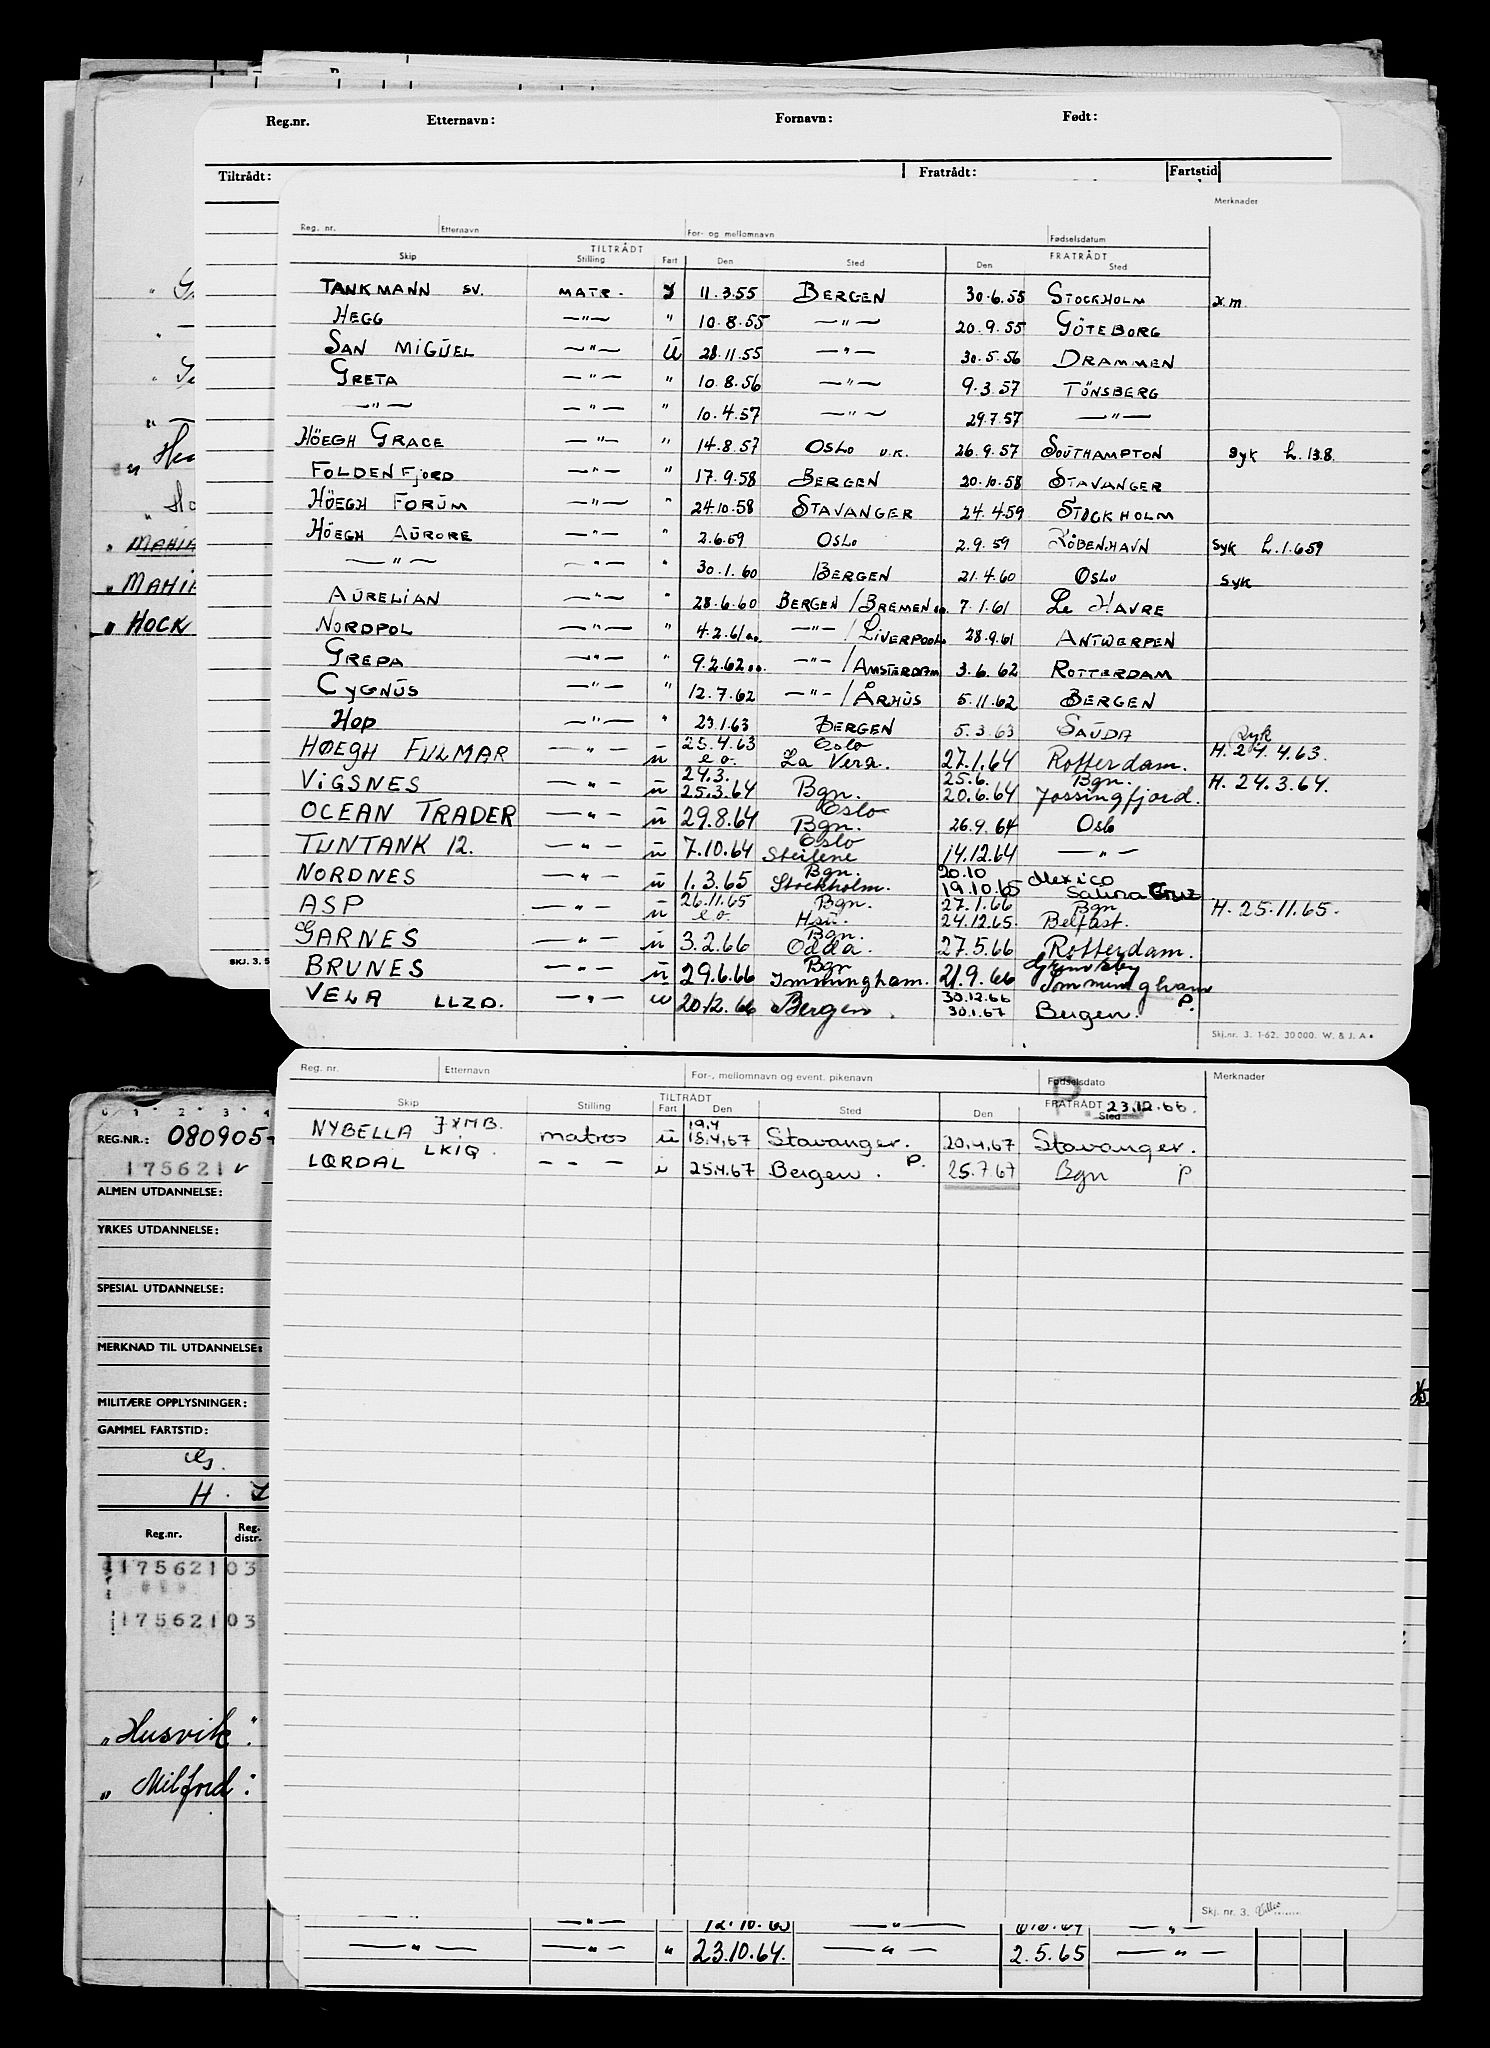 Reg.nr. Etternavn: Fornavn: Født:
Tiltrådt: Fratrådt: Fartstid
Merknader
Reg. nr. Etternavn For- og mellomnavn Fødselsdatum
TILTRÅDT FRATRÅDT
Skip Stilling Fart Den Sted Den Sted
TANKMANN SV. MATR. I 11.3.55 BERGEN 30.6.55 STOCKHOLM x.m.
HEGG —"— " 10.8.55 —"— 20.9.55 GÖTEBORG
SAN MIGUEL —"— U 28.11.55 —"— 30.5.56 DRAMMEN
GRETA —"— " 10.8.56 —"— 9.3.57 TÖNSBERG
—"— —"— " 10.4.57 —"— 29.7.57 —"—
HÖEGH GRACE —"— " 14.8.57 OSLO U.K. 26.9.57 SOUTHAMPTON Syk h. 13.8.
FOLDENFJORD —"— " 17.9.58 BERGEN 20.10.58 STAVANGER
HÖEGH FORUM —"— " 24.10.58 STAVANGER 24.4.59 STOCKHOLM
HÖEGH AURORE —"— " 2.6.59 OSLO 2.9.59 KÖBENHAVN Syk h.1.659
—"— —"— " 30.1.60 BERGEN 21.4.60 OSLO Syk
AURELIAN —"— " 28.6.60 BERGEN/BREMEN 7.1.61 Le HAVRE
NORDPOL —"— " 4.2.61 —"—/LIVERPOOL 28.9.61 ANTWERPEN
GREPA —"— " 9.2.62 —"—/AMSTERDAM 3.6.62 ROTTERDAM
CYGNUS —"— " 12.7.62 —"—/ÅRHUS 5.11.62 BERGEN
Hop —"— " 23.1.63 BERGEN 5.3.63 SAUDA
25.4.63 Oslo Syk
HØEGH FULMAR —"— u e.o. La Vera. 27.1.64 Rotterdam. H. 24.4.63.
24.3. 25.6. Bgn.
VIGSNES —"— u 25.3.64 Bgn. 20.6.64 Jøssingfjord. H. 24.3.64.
Oslo
OCEAN TRADER —"— u 29.8.64 Bgn. 26.9.64 Oslo
Oslo
TUNTANK 12. —"— u 7.10.64 Steilene 14.12.64 —"—
Bgn. 20.10 Mexico
NORDNES —"— u 1.3.65 Stockholm. 19.10.65 Salina Cruz
26.11.65 Bgn. 27.1.66 Bgn
ASP —"— u e.o. 24.12.65. Belfast. H. 25.11.65.
Bgn.
GARNES —"— u 3.2.66 Odda. 27.5.66 Rotterdam.
Bgn Grimsby
BRUNES —"— u 29.6.66 Immingham. 21.9.66 Immingham
30.12.66 P.
VELA LLZD. —"— u 20.12.66 Bergen. 30.1.67 Bergen.
SKJ. 3. 5
Skj.nr. 3. 1-62. 30000. W. & J. A.
MAHIA
MAHIA
HOCK
Reg. nr. Etternavn For-, mellomnavn og event. pikenavn Fødselsdato Merknader
P
TILTRÅDT FRATRÅDT 23.12.66.
Skip Stilling Fart Den Sted Den Sted
19.4
NYBELLA JXMB. matros u 18.4.67 Stavanger. 20.4.67 Stavanger.
LÆRDAL LKIQ. — — — i 25.4.67 Bergen. P. 25.7.67 Bgn P
Skj. nr. 3.
0 1 2 3 4
REG.NR.: 080905
175621 v
ALMEN UTDANNELSE:
YRKES UTDANNELSE:
SPESIAL UTDANNELSE:
MERKNAD TIL UTDANNELSE:
MILITÆRE OPPLYSNINGER:
GAMMEL FARTSTID:
H.
Reg.nr. Reg. distr.
175621 03
175621 03
"Husvik"
"Milford"
—"— 12.10.63 —"— —"—
—"— —"— " 23.10.64. —"— 2.5.65 —"—